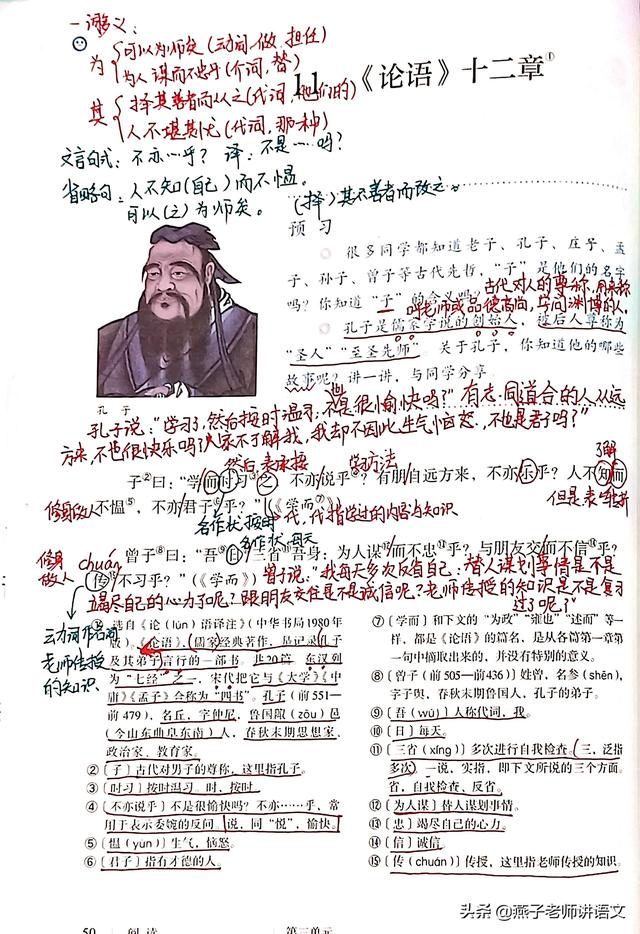 一词多义：
为 { 可以为师矣（动词，做、担任）
为人谋而不忠乎（介词，替）
其 { 择其善者而从之（代词，他们的）
人不堪其忧（代词，那种）
11 《论语》十二章①
文言句式：不亦…乎？ 译：不是…吗？
省略句：人不知（自己）而不愠。
可以（之）为师矣。
（择）其不善者而改之。
预习
很多同学都知道老子、孔子、庄子、孟
子、孙子、曾子等古代先哲，“子”是他们的名字
吗？你知道“子”的含义吗？
古代对人的尊称，用来称
呼老师或品德高尚，学问渊博的人，
孔子是儒家学说的创始人，被后人尊称为
“圣人”“至圣先师”。关于孔子，你知道他的哪些
故事呢？讲一讲，与同学分享。
孔子
孔子说：“学习了，然后按时温习，不也是很愉快吗？”有志同道合的人从远
方来，不也很快乐吗？人家不了解我，我却不因此生气恼怒，不也是君子吗？”
然后，表承接
学习方法
了解
子②曰：“学而时习③之，不亦说乎④？有朋自远方来，不亦乐乎？人不知而
修身做人
不愠⑤，不亦君子⑥乎？”（《学而》⑦）
但是 表转折
名作状，按时
代，代指学过的内容与知识
名作状，每天
曾子⑧曰：“吾⑨日⑩三省⑪吾身：为人谋⑫而不忠⑬乎？与朋友交而不信⑭乎？
修身
做人
chuán
传⑮不习乎？”（《学而》）
曾子说：“我每天多次反省自己：替人谋划事情是不是
竭尽自己的心力了呢？跟朋友交往是不是诚信呢？老师传授的知识是不是复习
过了呢？”
动词作名词
老师传授
的知识
① 选自《论（lún）语译注》（中华书局1980年
版）。《论语》，儒家经典著作，是记录孔子
及其弟子言行的一部书。共20篇。东汉列
为“七经”之一，宋代把它与《大学》《中
庸》《孟子》合称为“四书”。孔子（前551—
前479），名丘，字仲尼，鲁国陬（zōu）邑
（今山东曲阜东南）人，春秋末期思想家、
政治家、教育家。
②〔子〕古代对男子的尊称，这里指孔子。
③〔时习〕按时温习。时，按时。
④〔不亦说乎〕不是很愉快吗？不亦……乎，常
用于表示委婉的反问。说，同“悦”，愉快。
⑤〔愠（yùn）〕生气，恼怒。
⑥〔君子〕指有才德的人。
⑦《学而》和下文的“为政”“雍也”“述而”等一
样，都是《论语》的篇名，是从各篇第一章第
一句中摘取出来的，并没有特别的意义。
⑧ 曾子（前505—前436）姓曾，名参（shēn），
字子舆，春秋末期鲁国人，孔子的弟子。
⑨〔吾（wú）〕人称代词，我。
⑩〔日〕每天。
⑪〔三省（xǐng）〕多次进行自我检查。三，泛指
多次。一说，实指，即下文所说的三个方面。
省，自我检查、反省。
⑫〔为人谋〕替人谋划事情。
⑬〔忠〕竭尽自己的心力。
⑭〔信〕诚信。
⑮〔传（chuán）〕传授，这里指老师传授的知识。
50 阅读 第三单元
头条@燕子老师讲语文